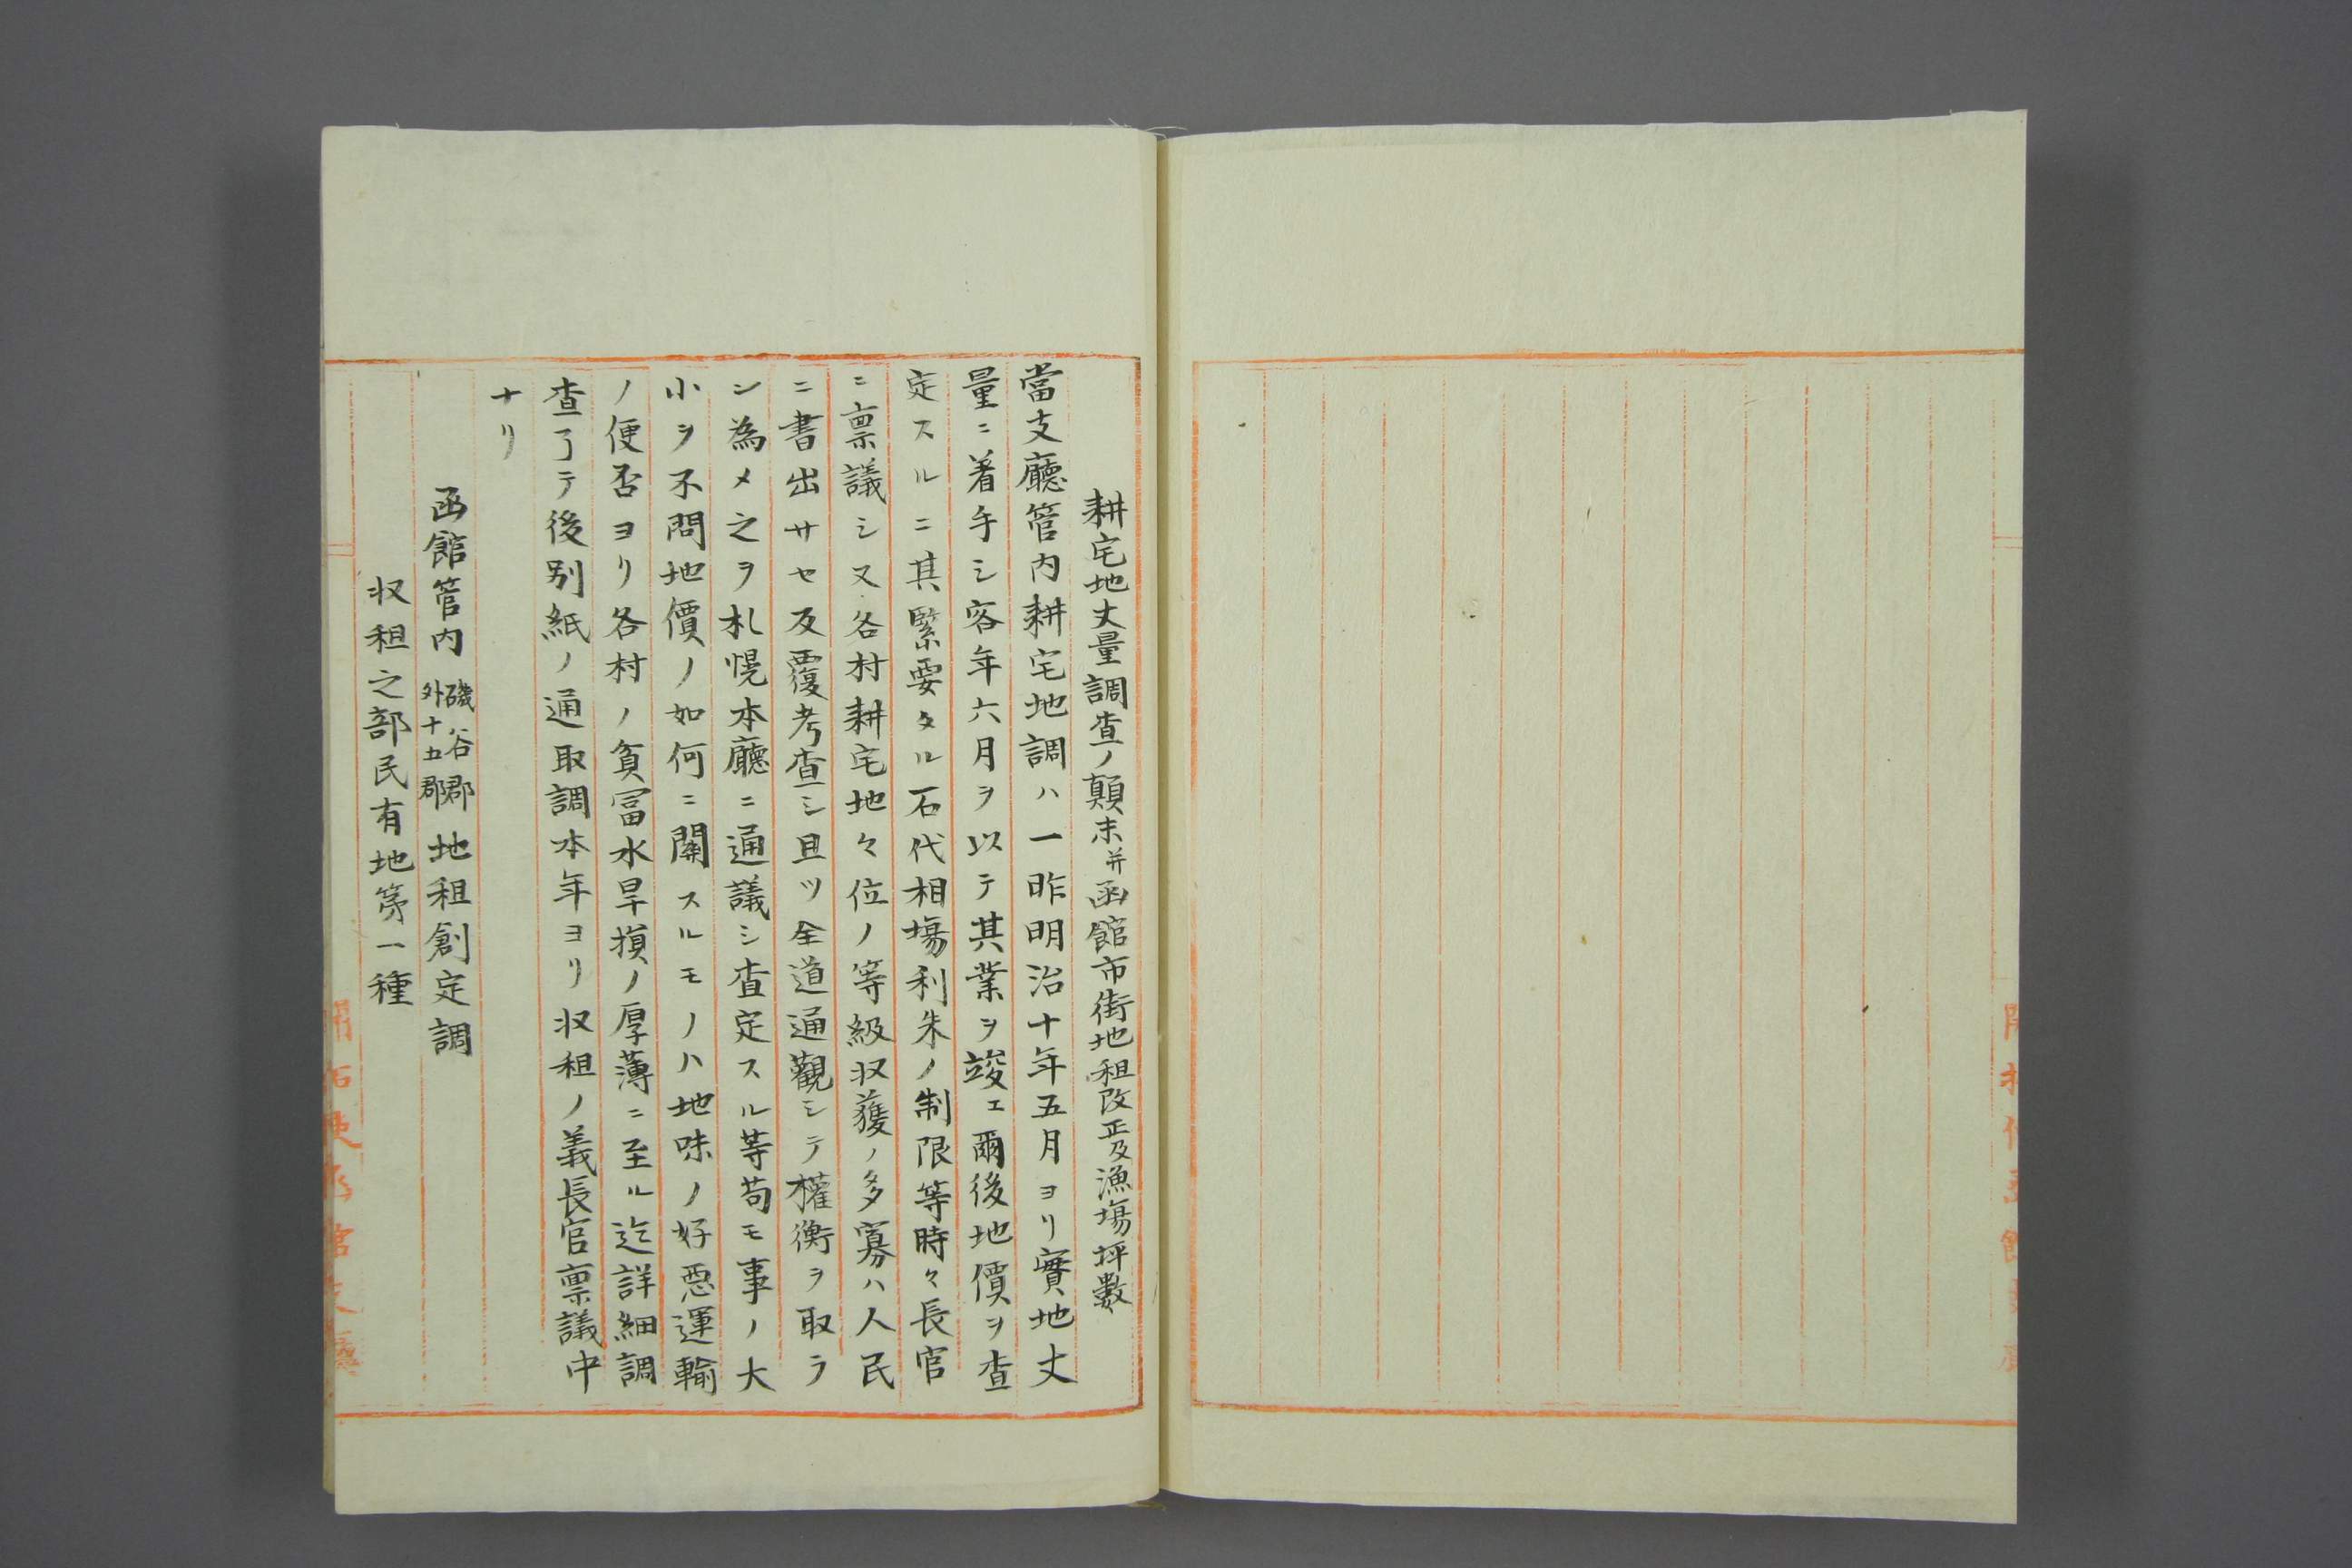 耕宅地丈量調査ノ顛末并函館市街地租改正及漁場坪數
當支廳管内耕宅地調ハ一昨明治十年五月ヨリ實地丈
量ニ着手シ客年六月ヲ以テ其業ヲ竣エ爾後地價ヲ査
定スルニ其緊要タル石代相場利朱ノ制限等時々長官
ニ禀議シ又各村耕宅地々位ノ等級収獲ノ多寡ハ人民
ニ書出サセ反覆考査シ且ツ全道通觀シテ權衡ヲ取ラ
ン為メ之ヲ札幌本廳ニ通議シ査定スル等苟モ事ノ大
小ヲ不問地價ノ如何ニ關スルモノハ地味ノ好悪運輸
ノ便否ヨリ各村ノ貧冨水旱損ノ厚薄ニ至ル迄詳細調
査了テ後別紙ノ通取調本年ヨリ収租ノ義長官禀議中
ナリ
函館管内磯谷郡外十五郡地租創定調
収租之部民有地第一種
開拓使函館支廳